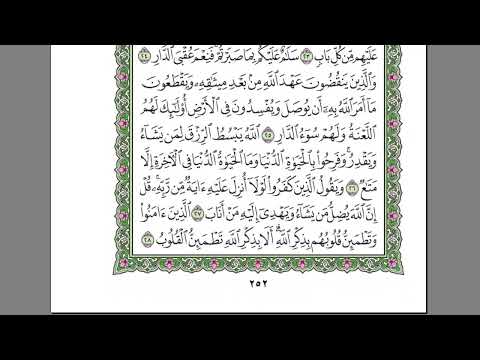 عَلَيْهِم مِّن كُلِّ بَابٍ ٢٣ سَلَٰمٌ عَلَيْكُم بِمَا صَبَرْتُمْ فَنِعْمَ عُقْبَى ٱلدَّارِ ٢٤
وَٱلَّذِينَ يَنقُضُونَ عَهْدَ ٱللَّهِ مِنۢ بَعْدِ مِيثَٰقِهِۦ وَيَقْطَعُونَ
مَآ أَمَرَ ٱللَّهُ بِهِۦٓ أَن يُوصَلَ وَيُفْسِدُونَ فِى ٱلْأَرْضِ أُو۟لَٰٓئِكَ لَهُمُ
ٱللَّعْنَةُ وَلَهُمْ سُوٓءُ ٱلدَّارِ ٢٥ ٱللَّهُ يَبْسُطُ ٱلرِّزْقَ لِمَن يَشَآءُ
وَيَقْدِرُ ۚ وَفَرِحُوا۟ بِٱلْحَيَوٰةِ ٱلدُّنْيَا وَمَا ٱلْحَيَوٰةُ ٱلدُّنْيَا فِى ٱلْءَاخِرَةِ إِلَّا
مَتَٰعٌ ٢٦ وَيَقُولُ ٱلَّذِينَ كَفَرُوا۟ لَوْلَآ أُنزِلَ عَلَيْهِ ءَايَةٌ مِّن رَّبِّهِۦ ۗ قُلْ
إِنَّ ٱللَّهَ يُضِلُّ مَن يَشَآءُ وَيَهْدِىٓ إِلَيْهِ مَنْ أَنَابَ ٢٧ ٱلَّذِينَ ءَامَنُوا۟
وَتَطْمَئِنُّ قُلُوبُهُم بِذِكْرِ ٱللَّهِ ۗ أَلَا بِذِكْرِ ٱللَّهِ تَطْمَئِنُّ ٱلْقُلُوبُ ٢٨
٢٥٢